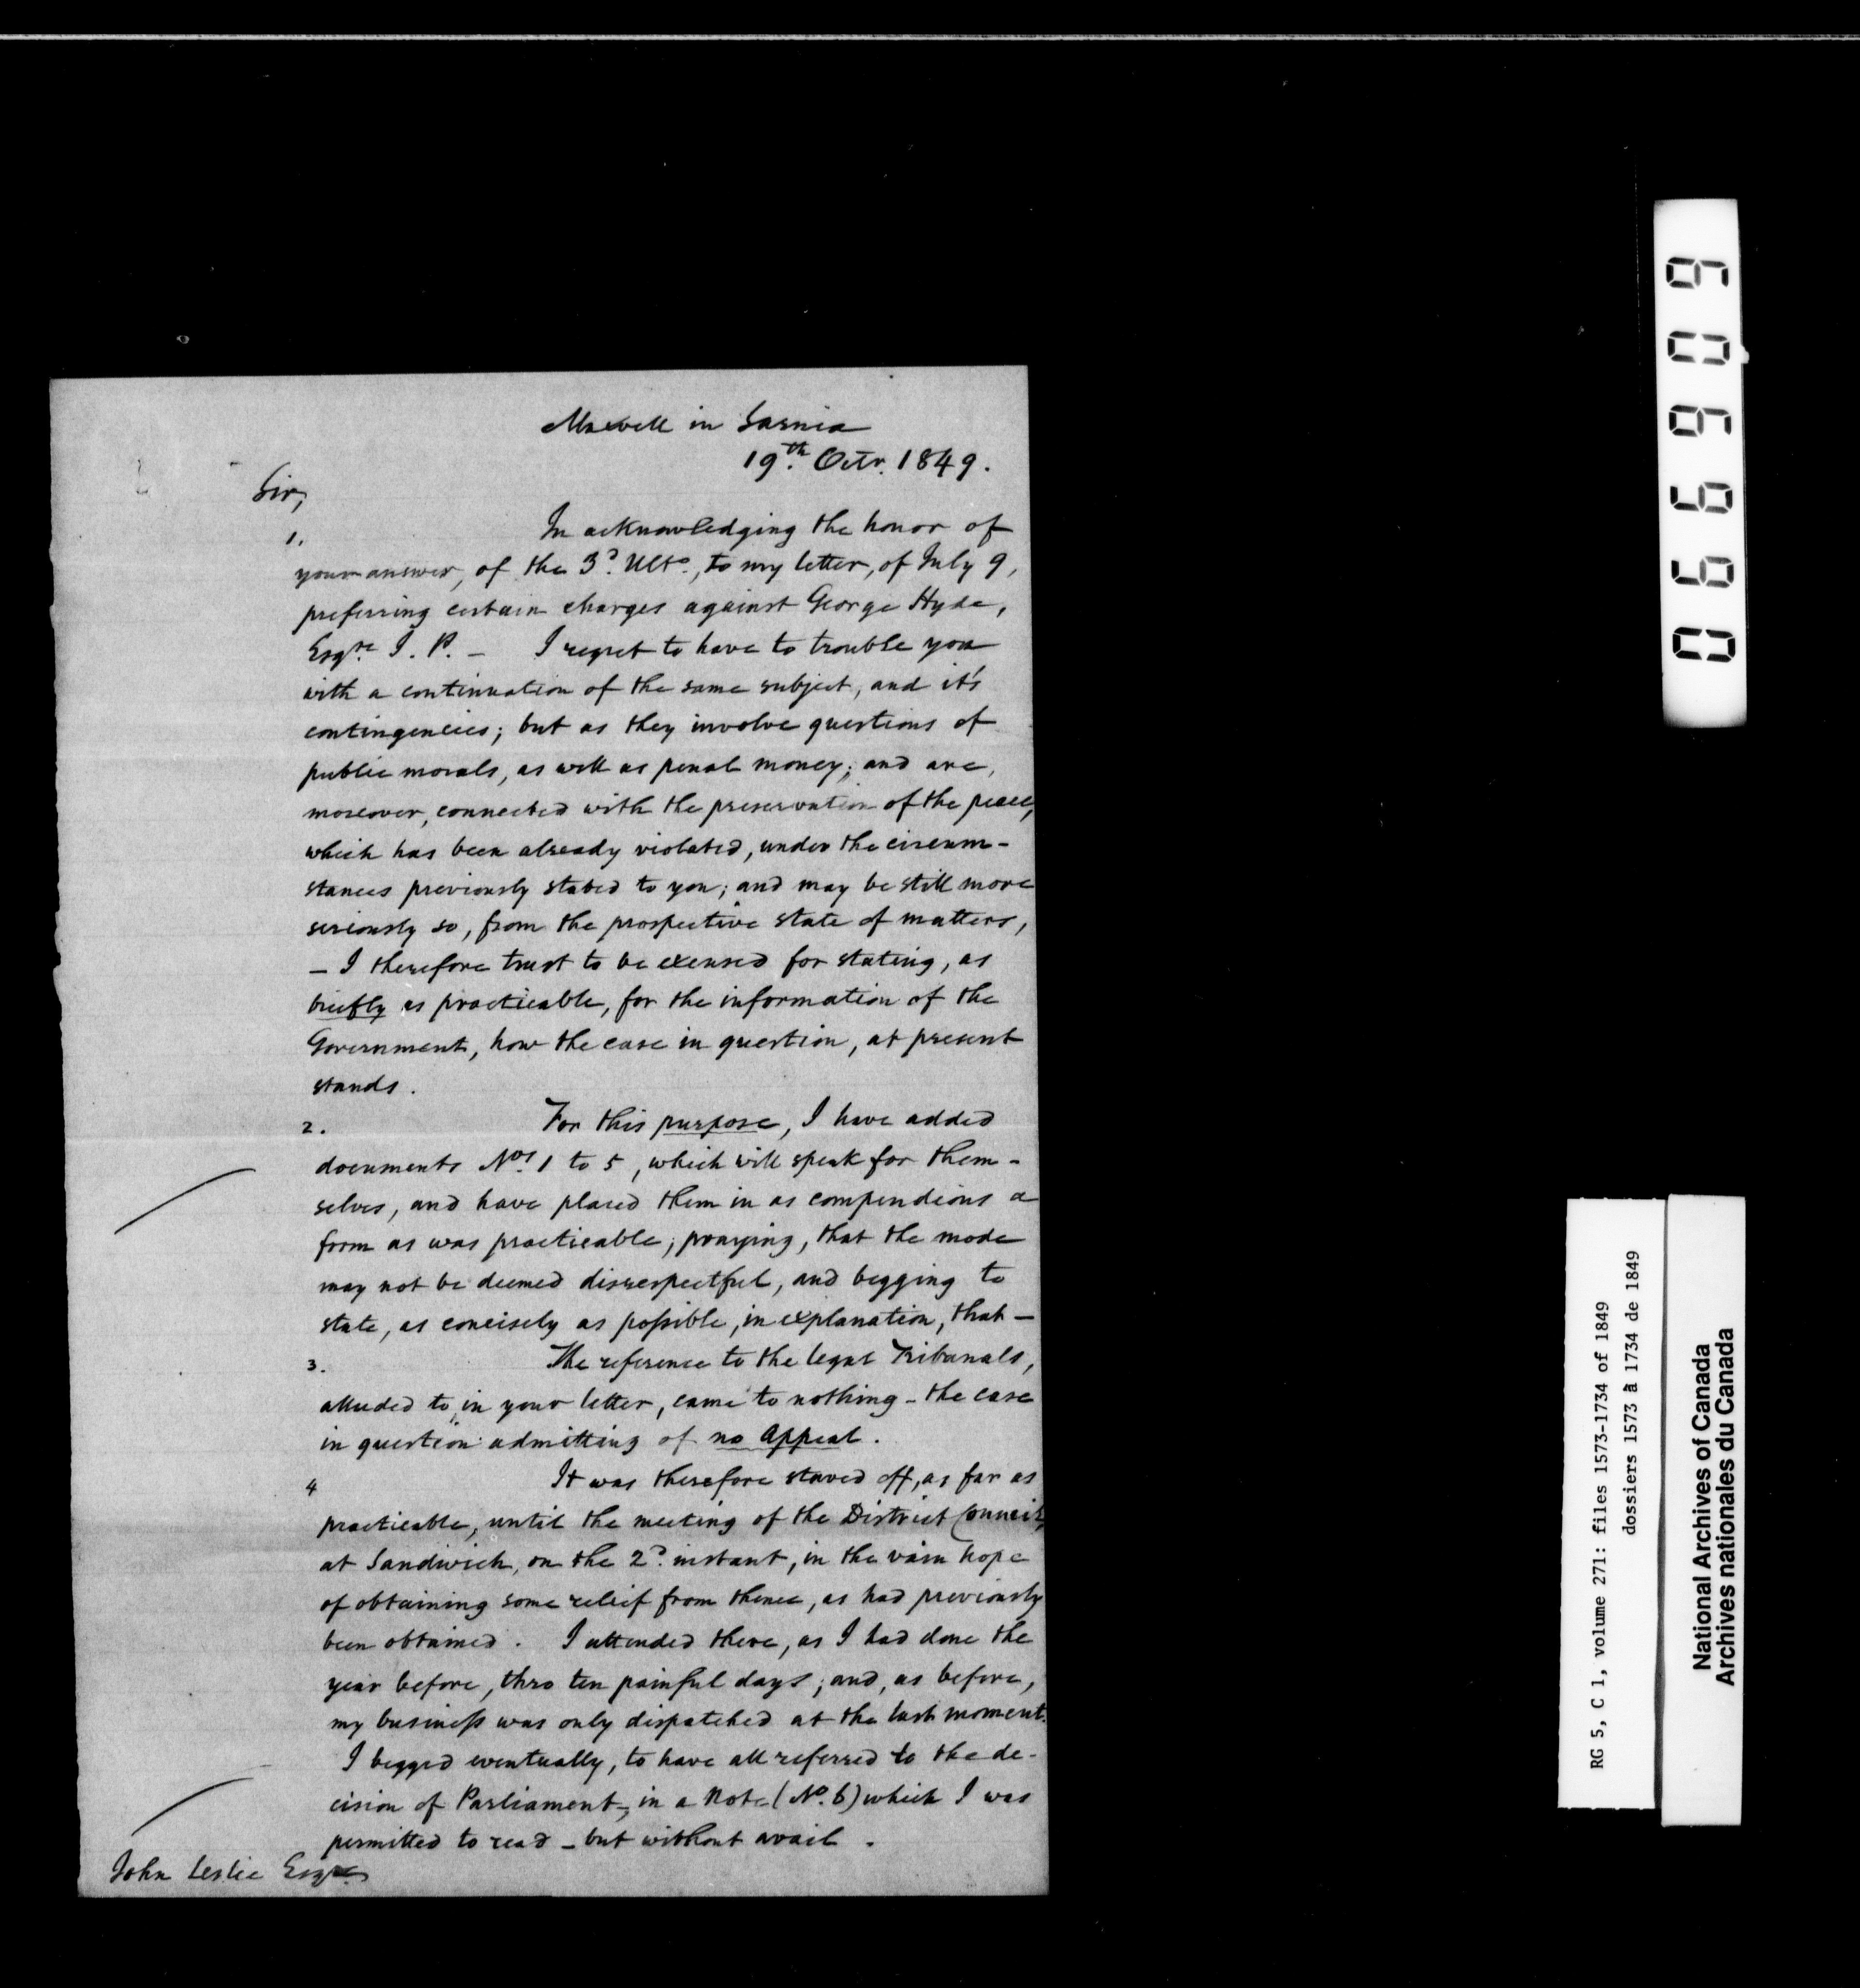 Maxwell in Sarnia
19th. Octr. 1849.
Sir,
1. In acknowledging the honor of
your answer, of the 3d. Ulto., to my letter, of July 9,
preferring certain charges against George Hyde,
Esqre. J. P. — I regret to have to trouble you
with a continuation of the same subject, and it's
contingencies; but as they involve questions of
public morals, as well as penal money; and are,
moreover, connected with the preservation of the peace,
which has been already violated, under the circum-
stances previously stated to you; and may be still more
seriously so, from the prospective state of matters,
— I therefore trust to be excused for stating, as
briefly as practicable, for the information of the
Government, how the case in question, at present
stands.
2. For this purpose, I have added
documents Nos. 1 to 5, which will speak for them-
selves, and have placed them in as compendious a
form as was practicable; praying, that the mode
may not be deemed disrespectful, and begging to
state, as concisely as possible, in explanation, that —
3. The reference to the legal Tribunals,
alluded to, in your letter, came to nothing - the case
in question admitting of no Appeal.
4 It was therefore staved off, as far as
practicable, until the meeting of the District Council,
at Sandwich, on the 2d. instant, in the vain hope
of obtaining some relief from thence, as had previously
been obtained. I attended there, as I had done the
year before, thro ten painful days; and, as before,
my business was only dispatched at the last moment.
I begged eventually, to have all referred to the de-
cision of Parliament, in a Note (No. 6) which I was
permitted to read - but without avail.
John Leslie Esqre.
066909
RG 5, C 1, volume 271: files 1573-1734 of 1849
dossiers 1573 à 1734 de 1849
National Archives of Canada
Archives nationales du Canada